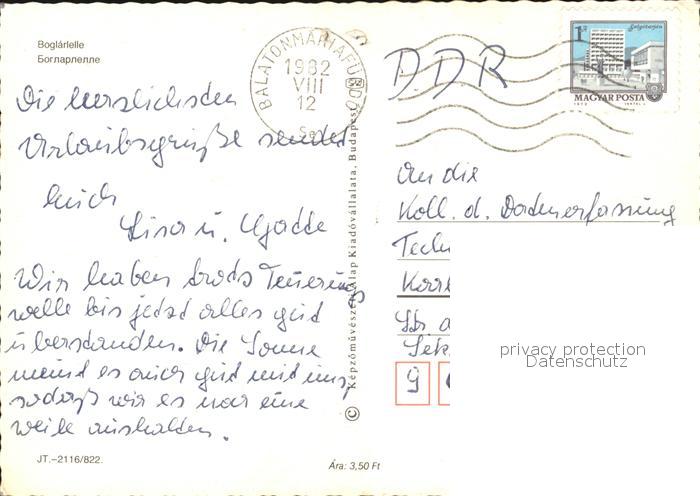 Boglárlelle
Богларлелле
BALATONMÁRIAFÜRDŐ
1982
VIII
12
DDR
1 Ft
Salgótarján
MAGYAR POSTA
1972
Die herzlichsten
Urlaubsgrüße sendet
Euch
u. Gatte
Wir haben trotz Teuerungs
welle bis jetzt alles gut
überstanden. Die Sonne
meint es auch gut mit uns,
sodaß wir es noch eine
weile aushalten.
An die
Koll. d. Datenerfassung
Tech
Karl
Str. d
Sek
9
privacy protection
Datenschutz
© Képzőművészeti Alap Kiadóvállalata, Budapest
JT.–2116/822.
Ára: 3,50 Ft